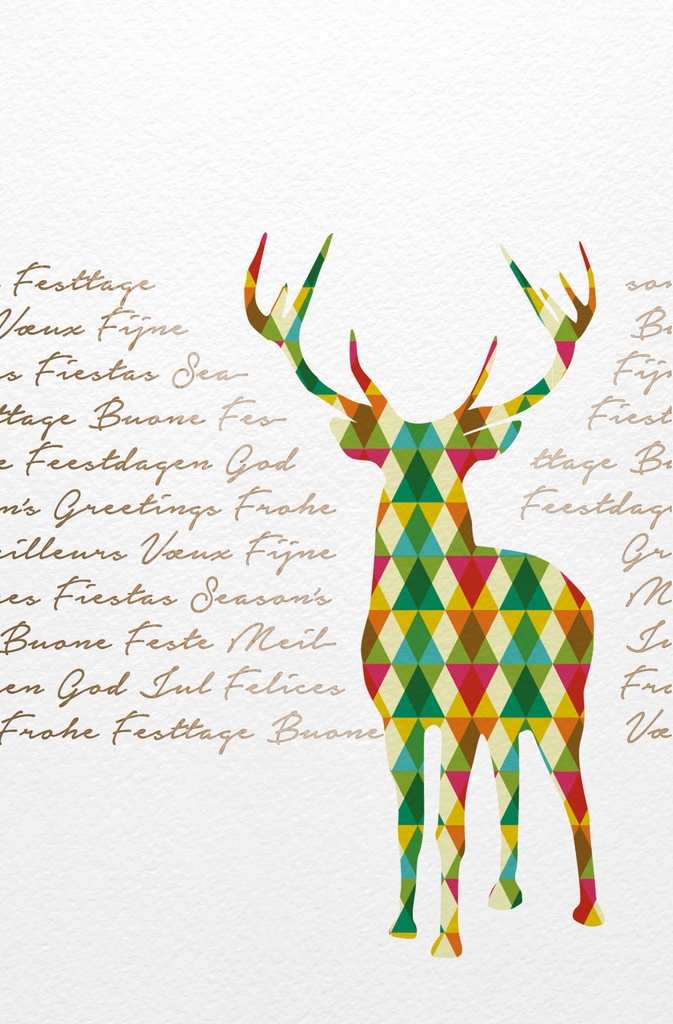 Festtage son
Vœux Fijne Bu
s Fiestas Sea- Fij
ttage Buone Fes- Fiest
e Feestdagen God ttage Bu
n's Greetings Frohe Feestdag
eilleurs Vœux Fijne Gr
es Fiestas Season's M
Buone Feste Meil- Ju
en God Jul Felices Fro
Frohe Festtage Buone Vœ